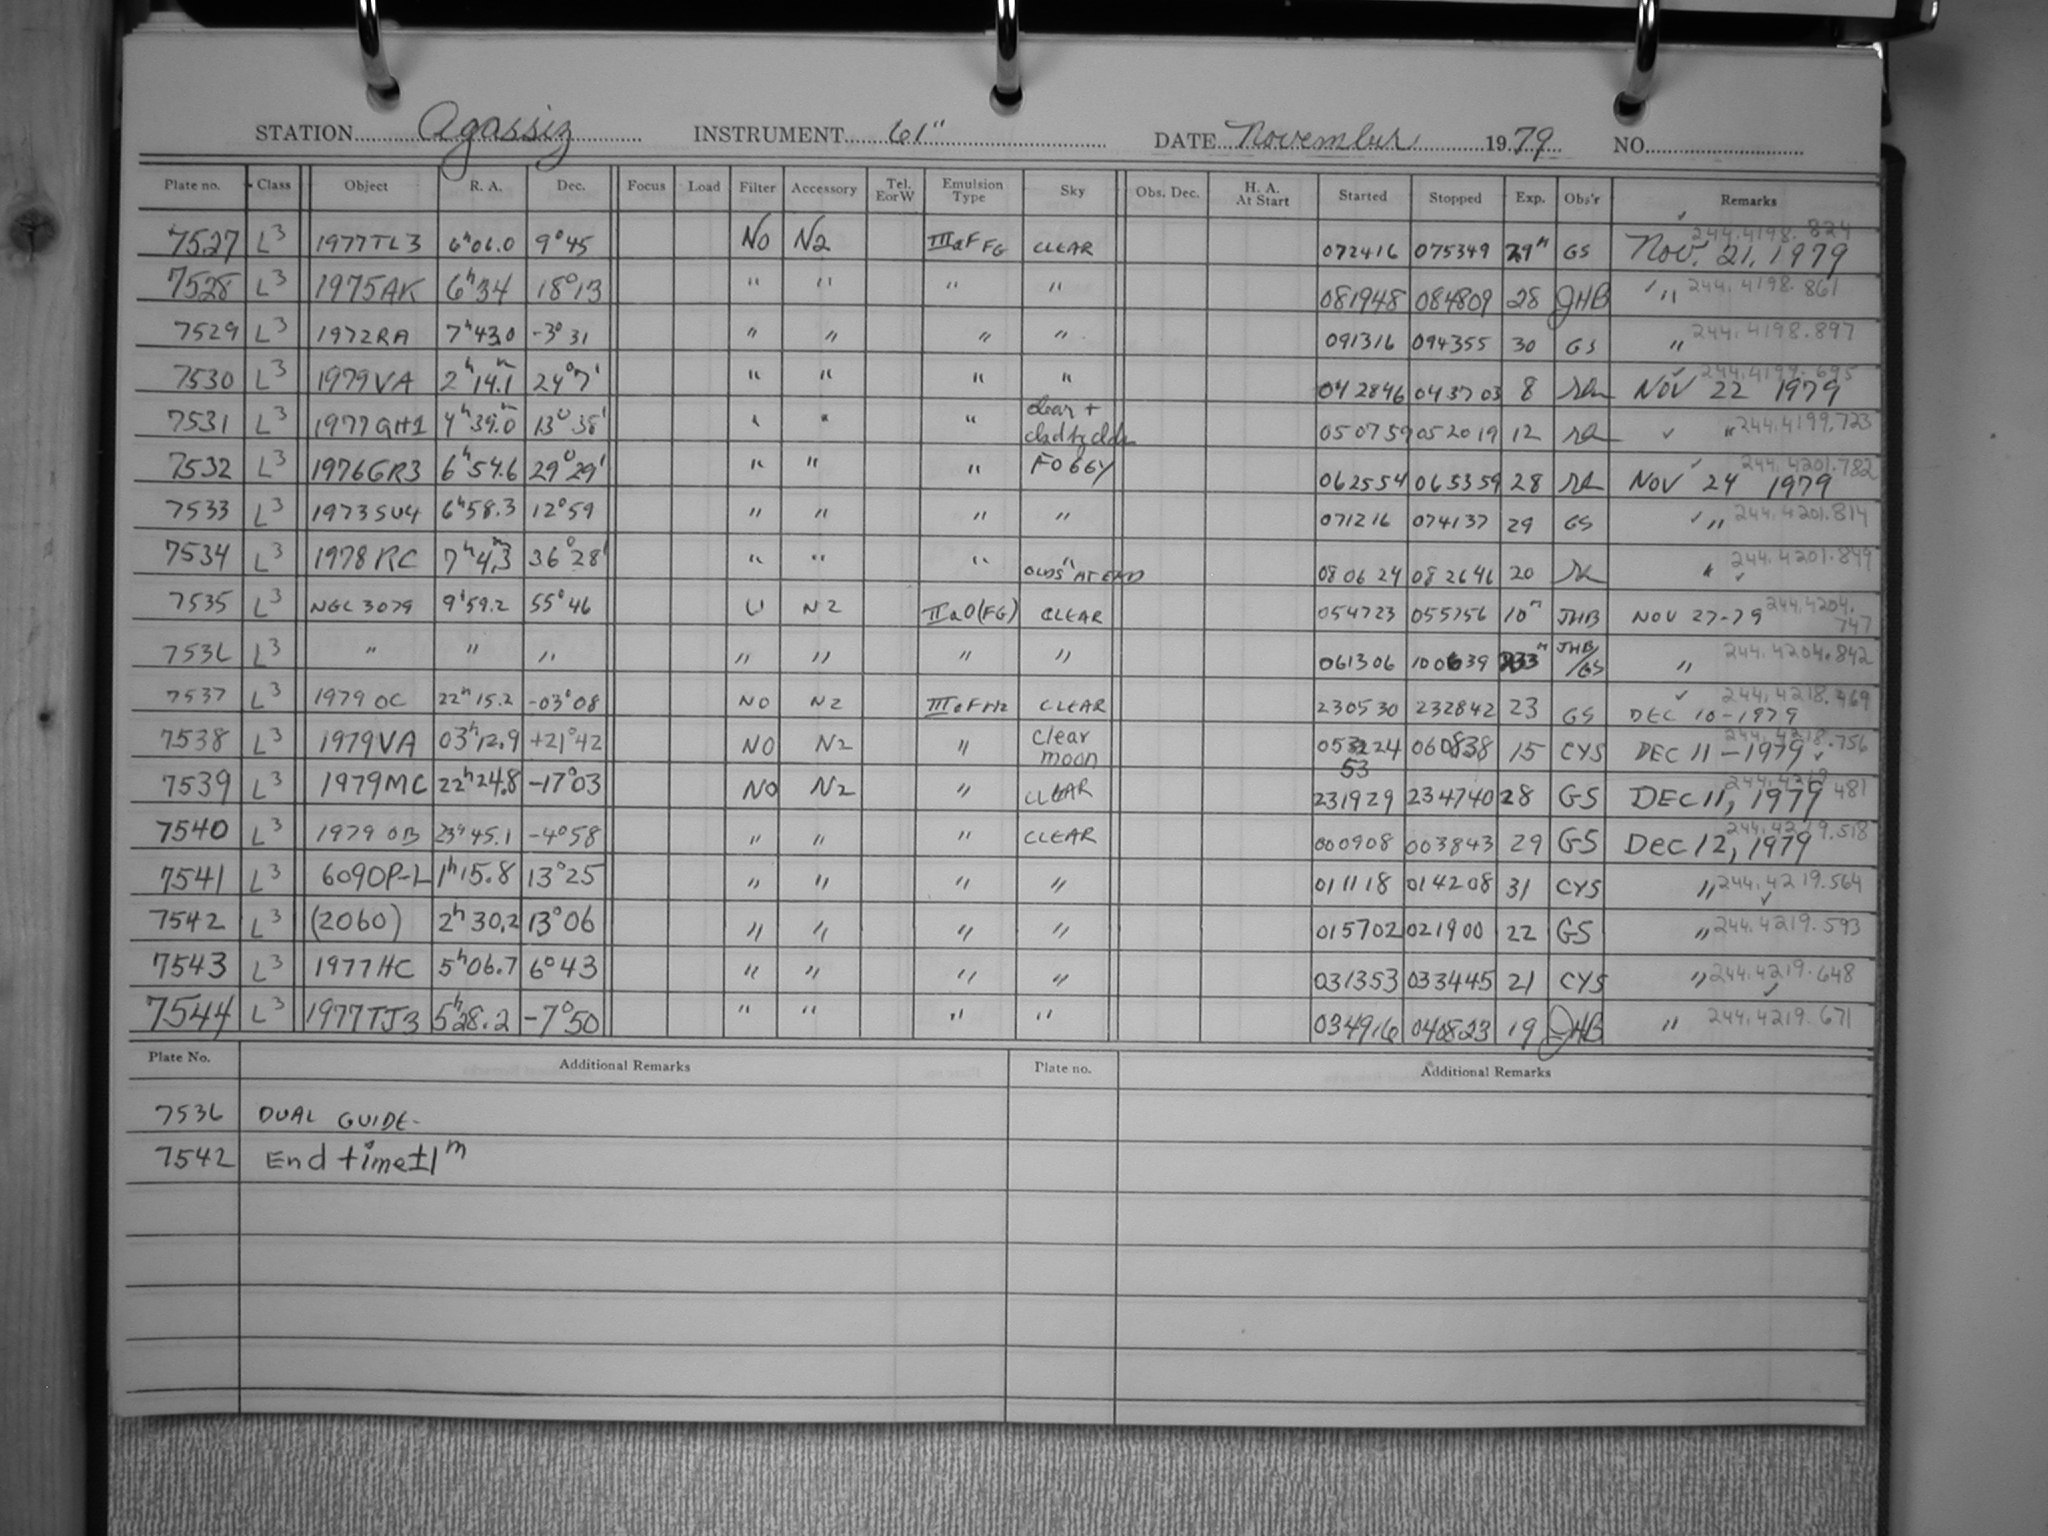 STATION Agassiz INSTRUMENT 61" DATE November 1979 NO.
Plate no. Class Object R. A. Dec. Focus Load Filter Accessory Tel. E or W Emulsion Type Sky Obs. Dec. H. A. At Start Started Stopped Exp. Obs'r Remarks
7527 L3 1977TL3 6h06.0 9°45 NO N2 IIIaF FG CLEAR 072416 075349 29m GS Nov. 21, 1979 244.4198.824
7528 L3 1975AK 6h34 18°13 " " " " 081948 084809 28 JHB " 244.4198.861
7529 L3 1972RA 7h43.0 -3°31 " " " " 091316 094355 30 GS " 244.4198.897
7530 L3 1979VA 2h14.1m 24°7' " " " " 042846 043703 8 NOV 22 1979 244.4199.695
7531 L3 1977QH1 4h39.0m 13°38' " " " clear + 050759 052019 12 " 244.4199.723
7532 L3 1976GR3 6h54.6 29°29' " " " FOGGY 062554 065359 28 NOV 24 1979 244.4201.782
7533 L3 1973SU4 6h58.3 12°59 " " " " 071216 074137 29 GS " 244.4201.814
7534 L3 1978RC 7h4.3m 36°28' " " " " CLDS AT END 080624 082646 20 " 244.4201.849
7535 L3 NGC3079 9h59.2 55°46 U N2 IIaO(FG) CLEAR 054723 055756 10m JHB NOV 27-79 244.4204.747
7536 L3 " " " " " " " 061306 100639 233m JHB/GS " 244.4204.842
7537 L3 1979 OC 22h15.2 -03°08 NO N2 IIIaF H2 CLEAR 230530 232842 23 GS DEC 10-1979 244.4218.469
7538 L3 1979VA 03h12.9 +21°42 NO N2 " clear moon 05 53 24 060838 15 CYS DEC 11-1979 244.4218.756
7539 L3 1979MC 22h24.8 -17°03 NO N2 " CLEAR 231929 234740 28 GS DEC 11, 1979 244.4219.481
7540 L3 1979 OB 23h45.1 -4°58 " " " CLEAR 000908 003843 29 GS Dec 12, 1979 244.4219.518
7541 L3 6090P-L 1h15.8 13°25 " " " " 011118 014208 31 CYS " 244.4219.564
7542 L3 (2060) 2h30.2 13°06 " " " " 015702 021900 22 GS " 244.4219.593
7543 L3 1977HC 5h06.7 6°43 " " " " 031353 033445 21 CYS " 244.4219.648
7544 L3 1977TJ3 5h28.2 -7°50 " " " " 034916 040823 19 JHB " 244.4219.671
Plate No. Additional Remarks Plate no. Additional Remarks
7536 DUAL GUIDE-
7542 End time±1m